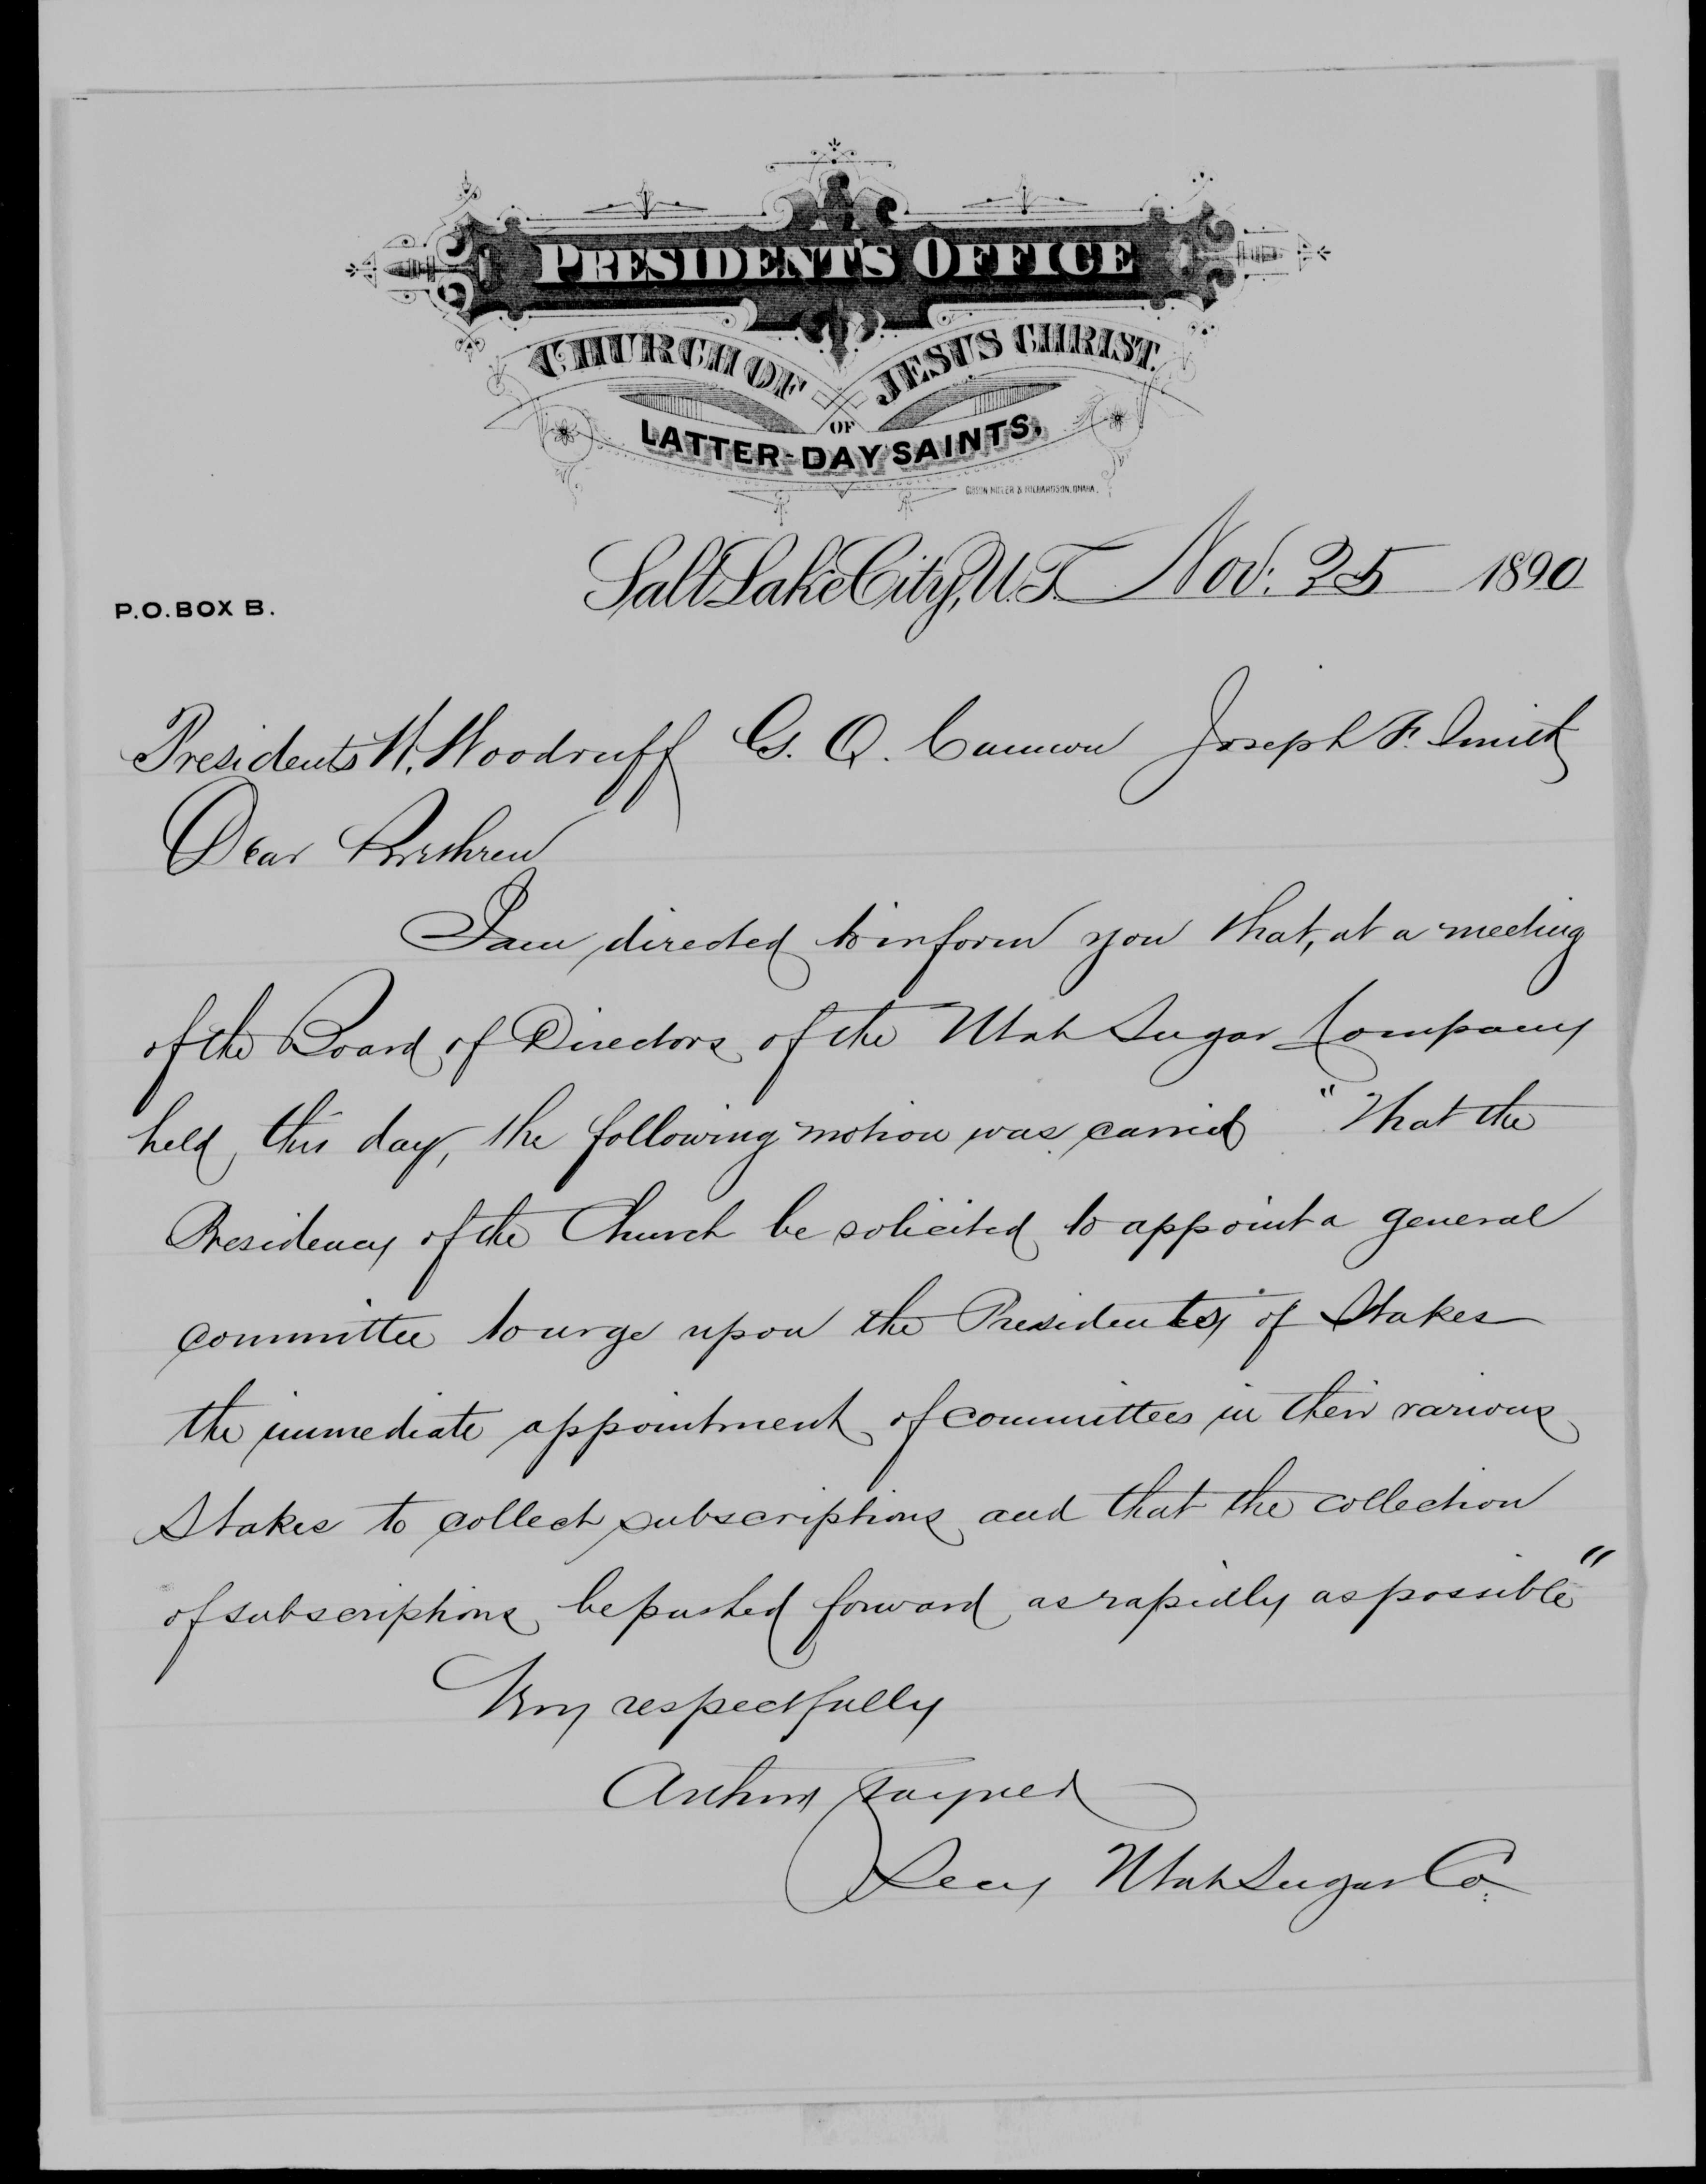 PRESIDENT'S OFFICE
CHURCH OF JESUS CHRIST.
OF
LATTER-DAY SAINTS,
P.O. BOX B.
Salt Lake City, U.T. Nov. 25 1890
Presidents W. Woodruff G. Q. Cannon Joseph F. Smith
Dear Brethren
I am directed to inform you that, at a meeting
of the Board of Directors of the Utah Sugar Company
held this day, the following motion was carried "That the
Presidency of the Church be solicited to appoint a general
committee to urge upon the Presidents of Stakes
the immediate appointment of committees in their various
Stakes to collect subscriptions and that the collection
of subscriptions be pushed forward as rapidly as possible"
Very respectfully
Arthur Stayner
Secy Utah Sugar Co.